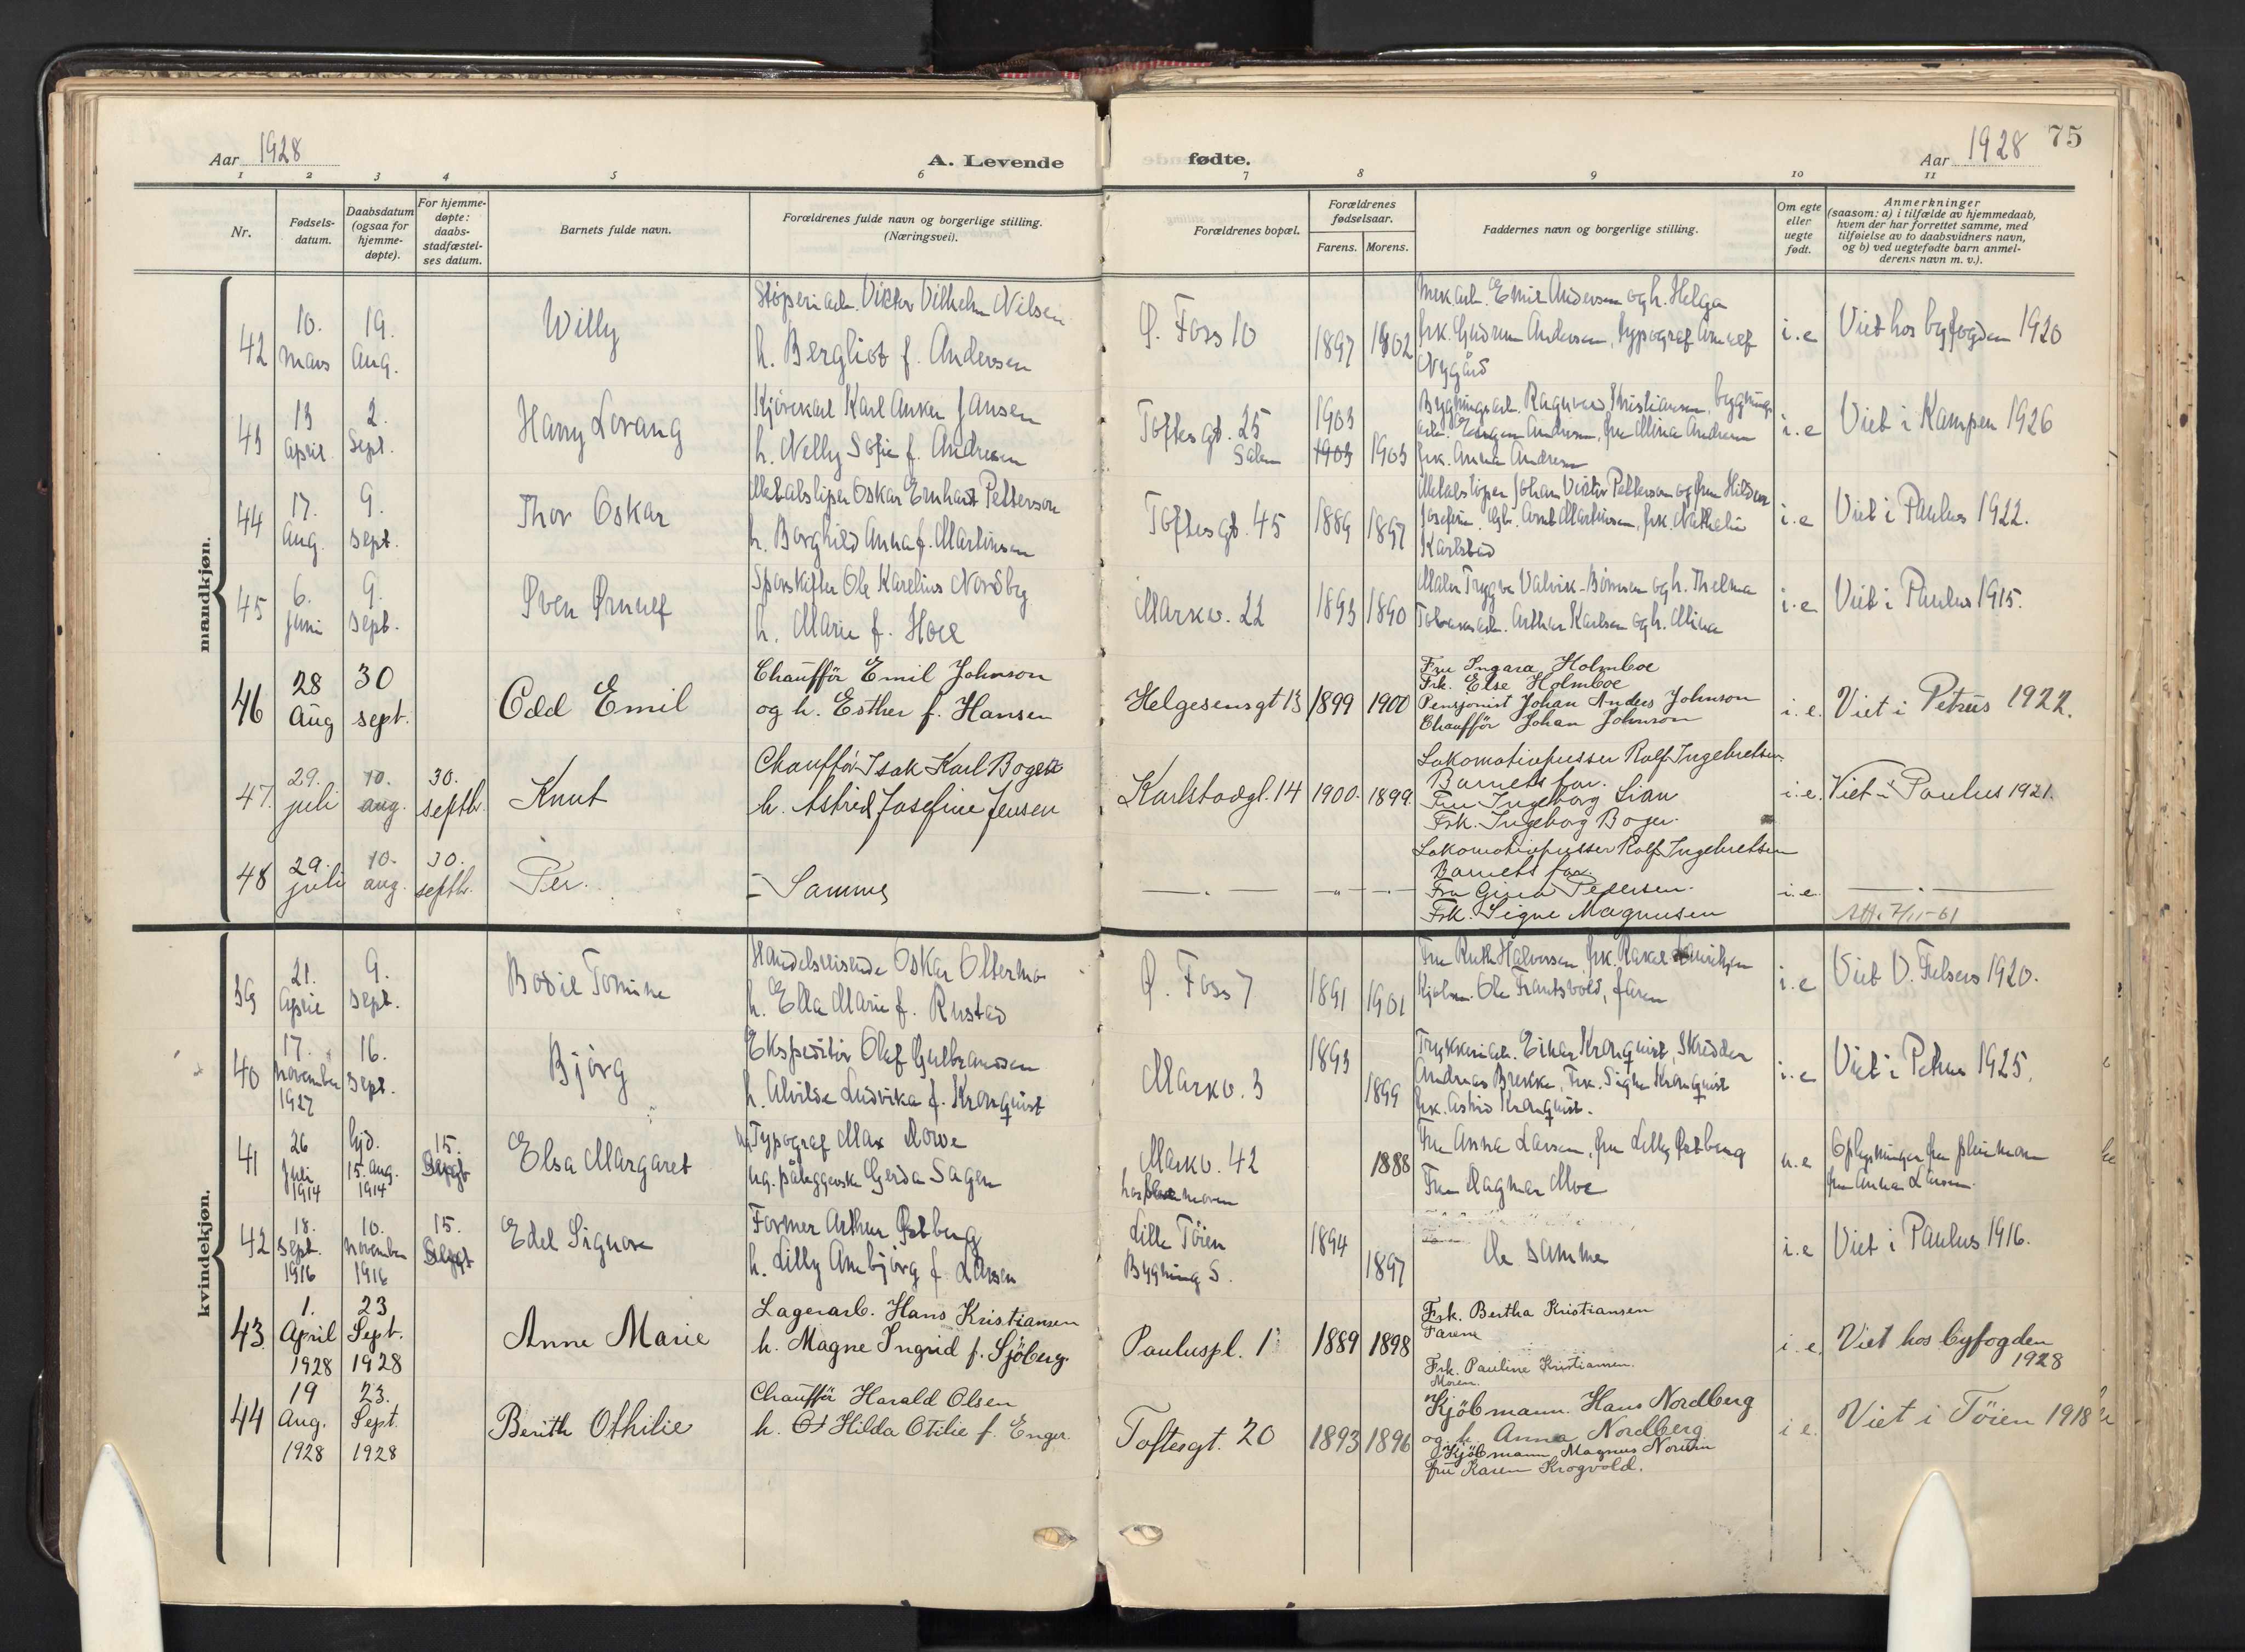 Aar 1928
A. Levende
fødte.
Aar 1928
75
1 2 3 4 5 6 7 8 9 10 11
Nr.
Fødsels-
datum.
Daabsdatum
(ogsaa for
hjemme-
døpte).
For hjemme-
døpte:
daabs-
stadfæstel-
ses datum.
Barnets fulde navn.
Forældrenes fulde navn og borgerlige stilling.
(Næringsvei).
Forældrenes bopæl.
Forældrenes
fødselsaar.
Farens. Morens.
Faddernes navn og borgerlige stilling.
Om egte
eller
uegte
født.
Anmerkninger
(saasom: a) i tilfælde av hjemmedaab,
hvem der har forrettet samme, med
tilføielse av to daabsvidners navn,
og b) ved uegtefødte barn anmel-
derens navn m. v.).
mandkjøn.
42
10.
mars
19.
Aug.
Willy
Støperiarb. Viktor Vilhelm Nilsen
h. Bergliot f. Andersen
Ø. Foss 10
1897 1902
Mek.arb. Emil Andersen og h. Helga
frk. Gudrun Andersen, typograf
Nygård
i. e
Viet hos byfogden 1920
43
13
April
2.
Sept.
Harry Lorang
Kjørekarl Karl Anker Jansen
h. Nelly Sofie f. Andresen
Toftesgt. 25
1903
1903 1903
Bygningsarb. Ragnvald Kristiansen, bygnings
arb. Andresen, fru Mina Andresen
frk. Anna Andresen
i. e
Viet i Kampen 1926
44
17.
Aug.
9.
Sept.
Thor Oskar
Metalsliper Oskar Ernhart Petterson
h. Borghild Anna f. Martinsen
Toftesgt. 45
1889 1897
Metalsliper Johan Viktor Pettersen og fru Hildur
Josefine, Martinsen, frk. Nathalie
Karlstad
i. e
Viet i Paulus 1922.
45
6.
juni
9.
Sept.
Sven Ørnulf
Sporskifter Ole Karelius Nordby
h. Marie f. Hoel
Markv. 22
1893 1890
Maler Trygve Valvik-Børnsen og h. Thelma
Tobaksarb. Arthur Karlsen og h. Mina
i. e
Viet i Paulus 1915.
46
28
Aug
30
sept.
Odd Emil
Chaufför Emil Johnson
og h. Esther f. Hansen
Helgesensgt 13
1899 1900
Fru Ingara Holmboe
Frk. Else Holmboe
Pensjonist Johan Anders Johnson
Chaufför Johan Johnson
i. e.
Viet i Petrus 1922.
47.
29.
juli
10.
aug.
30.
septb.
Knut
Chauffør Isak Karl Boger
h. Astrid Josefine Jensen
Karlstadgt. 14
1900. 1899.
Lokomotivpusser Rolf Ingebretsen.
Barnets far.
Fru Ingeborg Lian
Frk. Ingeborg Boger.
i. e.
Viet i Paulus 1921.
48
29.
juli
10.
aug.
30.
septb.
Per.
= Samme
Lokomotivpusser Rolf Ingebretsen
Barnets far.
Fru Gina Pedersen.
Frk. Signe Magnusen
i. e.
Att. 7/11-61
kvindekjøn.
39
21.
April
9.
Sept.
Bodil Tomine
Handelsreisende Oskar Oltermo
h. Ella Marie f. Rustad
Ø. Foss 7
1891 1901
Fru Ruth Halvorsen, frk. Rakel
Ole Frantsvold, faren
i. e
Viet 1920.
40
17.
November
1927
16.
Sept.
Bjørg
Ekspeditør Olaf Gulbrandsen
h. Alvilde Ludvika f. Kronquist
Markv. 3
1893
1899
Trykkeriarb. Einar Kronquist, Skredder
Andreas Brekke, Frk. Signe Kronquist
frk. Astrid Kronquist.
i. e
Viet i Petrus 1925.
41
26
Juli
1914
hjd.
15. Aug.
1914
15.
Sept
Elsa Margaret
Typograf Max
ug. pålæggerske Gerda Sagen
Markv. 42
hos pleiemoren
1888
Fru Anna Larsen, fru Lilly Østberg
Fru Dagmar Moe
u. e
Oplysninger fra pleiemoren
fru Anna Larsen.
42
18.
Sept.
1916
10.
November
1916
15.
Sept
Edel Signora
Former Arthur Østberg
h. Lilly Arnbjørg f. Larsen
Lille Tøien
Bygning S.
1894
1897
De samme
i. e
Viet i Paulus 1916.
43.
1.
April
1928
23
Sept.
1928
Anne Marie
Lagerarb. Hans Kristiansen
h. Magne Ingrid f. Sjöberg.
Pauluspl. 1
1889 1898
Frk. Bertha Kristiansen
Faren
Frk. Pauline Kristiansen.
Moren.
i. e.
Viet hos byfogden
1928
44
19
Aug.
1928
23.
Sept.
1928
Berith Othilie
Chaufför Harald Olsen
h. Ot Hilda Otilie f. Enger.
Toftesgt. 20
1893 1896
Kjöbmann Hans Nordberg
og h. Anna Nordberg
Kjöbmann Magnus
fru Karen Krogvold.
i e.
Viet i Töien 1918